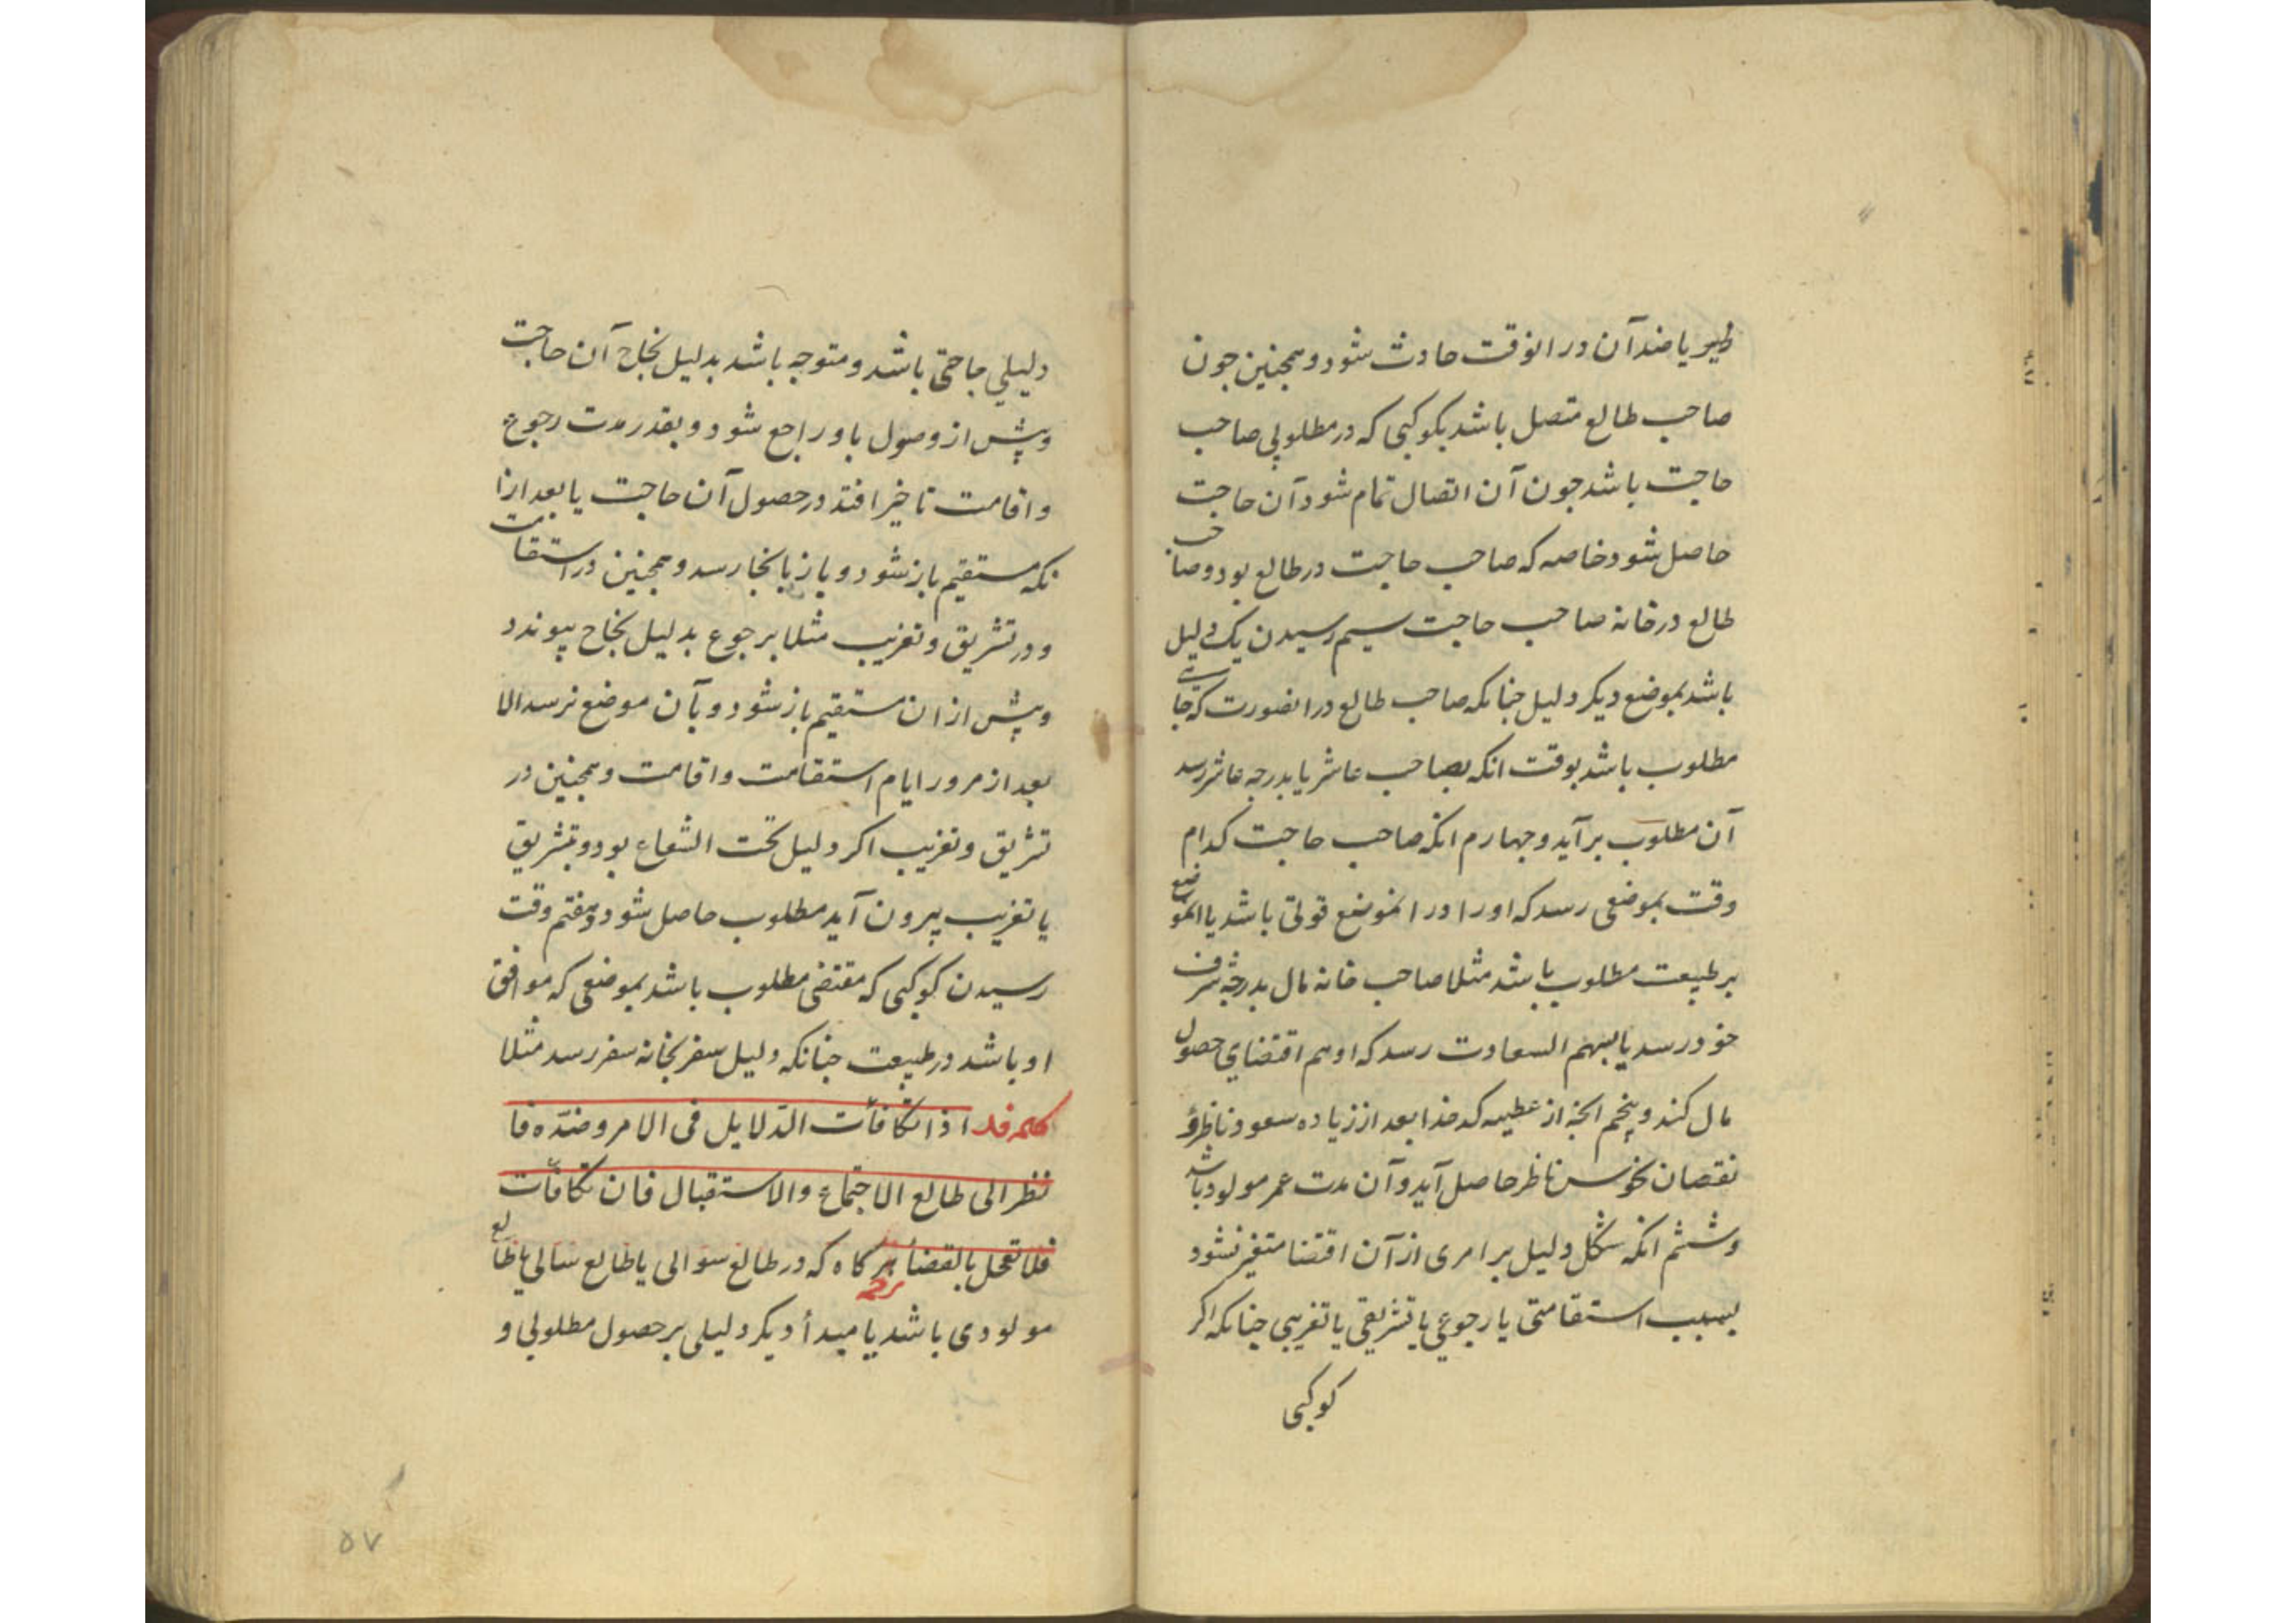 طیر یا ضد آن در انوقت حادث شود و همجنین جون
صاحب طالع متصل باشد بکوکبی که در مطلوبی صاحب
حاجت باشد جون آن اتصال تمام شود آن حاجت
حاصل شود خاصه که صاحب حاجت در طالع بود و صاحب
طالع در خانه صاحب حاجت سیم رسیدن یک دلیل
باشد بموضع دیکر دلیل جنانکه صاحب طالع در انصورت که حاجت
مطلوب باشد بوقت انکه بصاحب عاشر یا بدرجه عاشر رسد
آن مطلوب بر آید و جهارم انکه صاحب حاجت کدام
وقت بموضعی رسد که او را در انموضع قوتی باشد یا انموضع
بر طبیعت مطلوب باشد مثلا صاحب خانه مال بدرجه شرف
خود رسد یا بسهم السعادت رسد که او هم اقتضای حصول
مال کند و پنجم انجه از عطیه کدخدا بعد از زیاده سعود ناظر و
نقصان نحوس ناظر حاصل آید و آن مدت عمر مولود باشد
و ششم انکه شکل دلیل بر امری از آن اقتضا متغیر نشود
بسبب استقامتی یا رجوعی یا تشریقی یا تغریبی جنانکه اکر
کوکبی
دلیلی حاجتی باشد و متوجه باشد بدلیل نجاح آن حاجت
و پیش از وصول باو راجع شود و بقدر مدت رجوع
و اقامت تاخیر افتد در حصول آن حاجت یا بعد ازا
نکه مستقیم باز شود و باز بانجا رسد و همجنین در استقامت
و در تشریق و تغریب مثلا برجوع بدلیل نجاح پیوندد
و پیش از ان مستقیم باز شود و بآن موضع نرسد الا
بعد از مرور ایام استقامت و اقامت و همجنین در
تشریق و تغریب اکر دلیل تحت الشعاع بود و بتشریق
یا تغریب بیرون آید مطلوب حاصل شود و هفتم وقت
رسیدن کوکبی که مقتضی مطلوب باشد بموضعی که موافق
او باشد در طبیعت جنانکه دلیل سفر بخانه سفر رسد مثلا
کلمه فد اذا تکافأت الدّلایل فی الامر و ضدّه فا
نظر الی طالع الاجتماع و الاستقبال فان تکافأت
فلا تعجل بالقضأ هرکاه که در طالع سوالی یا طالع سالی یا طالع
مولودی باشد یا مبدأ دیکر دلیلی بر حصول مطلوبی و
۵۷